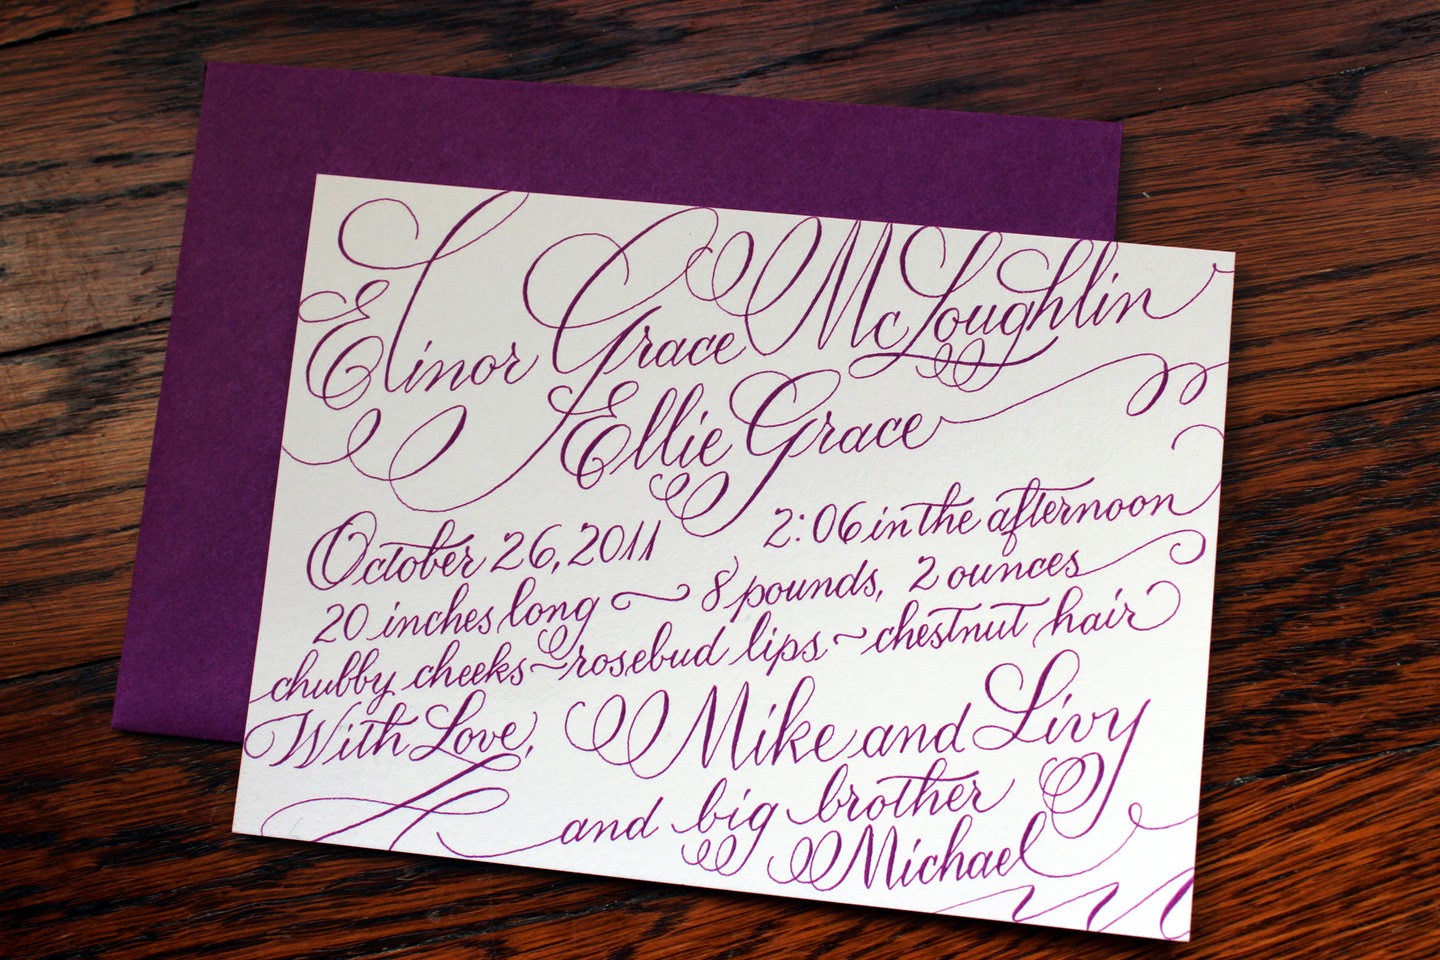 Elinor Grace McLoughlin
Ellie Grace
October 26, 2011 2:06 in the afternoon
20 inches long ~ 8 pounds, 2 ounces
chubby cheeks ~ rosebud lips ~ chestnut hair
With Love, Mike and Livy
and big brother
Michael